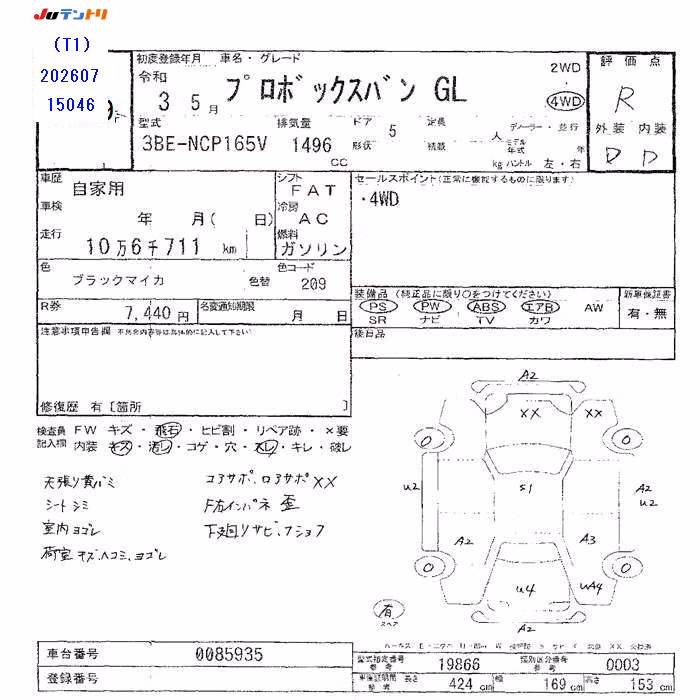 JUテントリ
(T1)
202607
15046
初度登録年月 車名・グレード
令和
3 5月
プロボックスバン GL
2WD
4WD
評価点
R
外装 内装
D D
型式
3BE-NCP165V
排気量
1496
CC
ドア
5
形状
定員
人
積載
kg
ディーラー・並行
モデル年式
年
ハンドル 左・右
車歴
自家用
車検
年 月( 日)
走行
10万6千711 km
シフト
FAT
冷房
AC
燃料
ガソリン
セールスポイント(正常に機能するものに限ります)
・4WD
色
ブラックマイカ
色替
色コード
209
R券
7,440円
名変通知期限
月 日
装備品(純正品に限り○をつけてください)
PS PW ABS エアB AW
SR ナビ TV カワ
新車保証書
有・無
後日品
注意事項申告欄
修復歴 有[箇所 ]
検査員記入欄
FW キズ・飛石・ヒビ割・リペア跡・×要
内装・キズ・汚レ・コゲ・穴・スレ・キレ・破レ
天張り黄バミ
シートシミ
室内ヨゴレ
荷室キズ、ヘコミ、ヨゴレ
コアサポ、ロアサポXX
F右インパネ歪
下廻りサビ、フショク
A2
XX
XX
0
0
S1
U2
A2
U2
A2
A3
0
0
U4
UA4
A2
有
スペア
車台番号
0085935
登録番号
型式指定番号
参考
19866
類別区分番号
参考
0003
車検証期間
参考
長さ
424 cm
幅
169 cm
高さ
153 cm